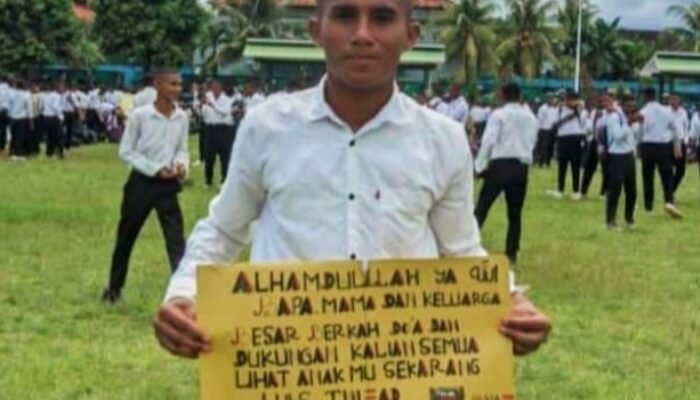 ALHAMDULILLAH YA الله
BAPA. MAMA DAN KELUARGA
BESAR BERKAH DO'A DAN
DUKUNGAN KALIAN SEMUA
LIHAT ANAK MU SEKARANG